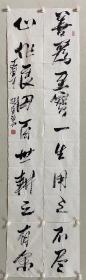 善为至宝一生用之不尽
心作良田百世耕之有余